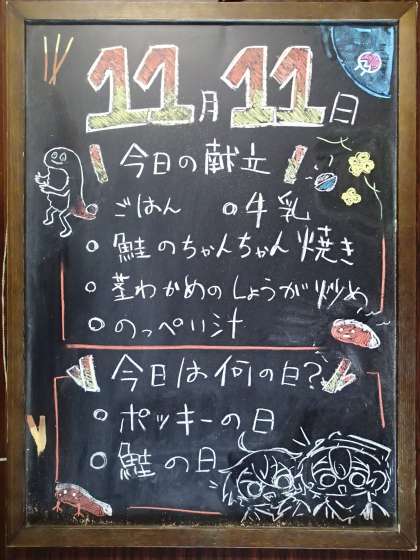 11月11日
今日の献立
ごはん ○牛乳
○鮭のちゃんちゃん焼き
○茎わかめのしょうが炒め
○のっぺい汁
今日は何の日?
○ポッキーの日
○鮭の日